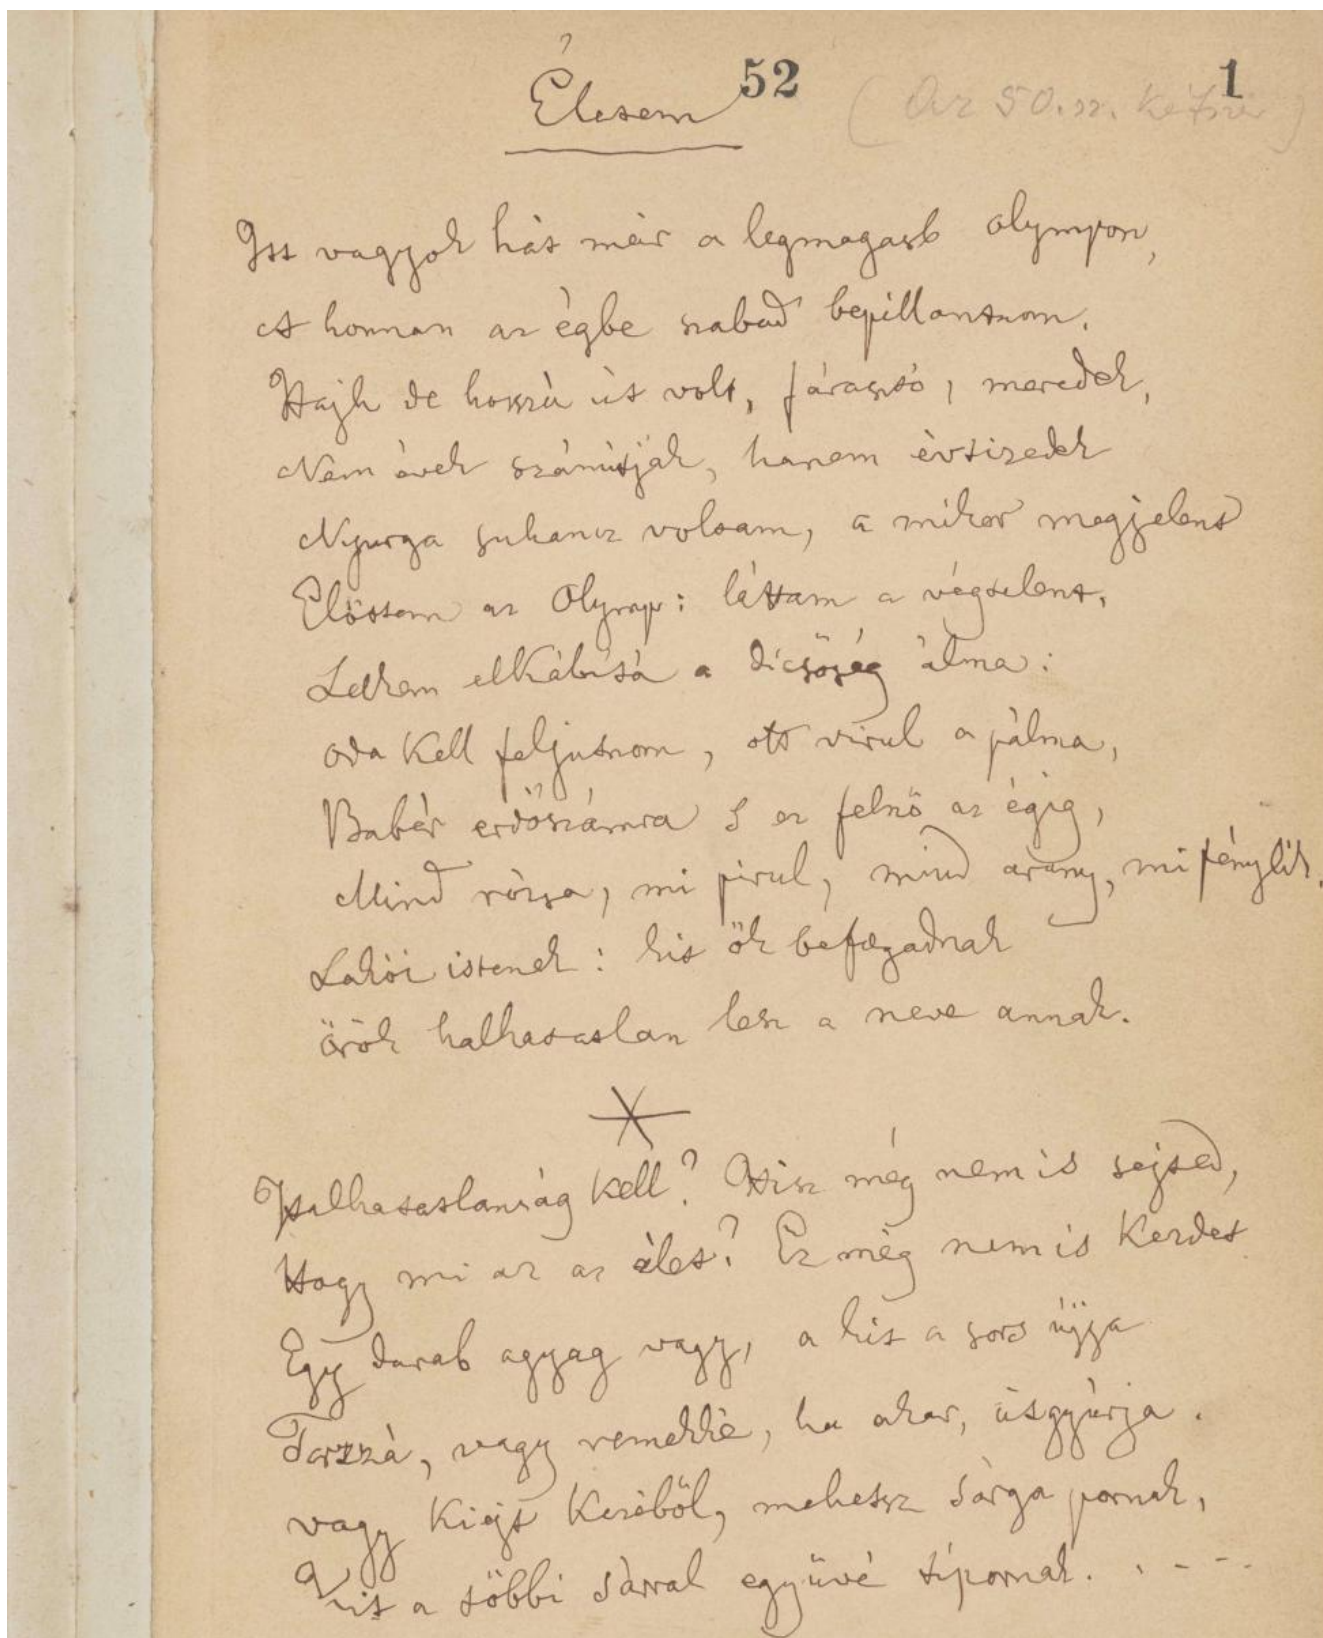 Életem
52
1
(Az 50. sz. kétszer)
Itt vagyok hát már a legmagasb olympon,
A honnan az égbe szabad bepillantnom.
Hajh de hosszú út volt, fárasztó, meredek,
Nem évek számitják, hanem évtizedek
Nyurga suhancz voltam, a mikor megjelent
Előttem az Olymp: láttam a végtelent,
Lelkem elkábitá a dicsőség álma:
oda kell feljutnom, ott virul a pálma,
Babér erdőszámra s ez felnő az égig,
Mind rózsa, mi pirul, mind arany, mi fénylik.
Lakói istenek: kit ők befogadnak
örök halhatatlan lesz a neve annak.
Halhatatlanság kell? Hisz még nem is sejted,
Hogy mi az az élet? Ez még nem is kezdet
Egy darab agyag vagy, a kit a sors ujja
Torzzá, vagy remekké, ha akar, útgyúrja.
vagy kiejt kezéből, mehetsz sárga pornak,
Kit a többi sárral együvé típornak. . - - -